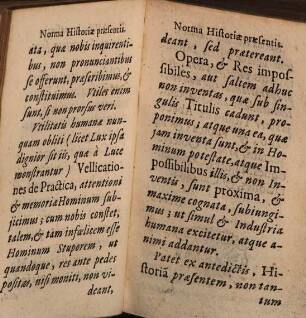 Norma Historiæ præsentis.
ata, quæ nobis inquirenti-
bus, non pronunciantibus
se offerunt, præscribimus, &
constituimus. Viles enim
sunt, si non prorsus veri.
Vtilitatis humanæ nun-
quam obliti (licet Lux ipsa
dignior sit iis, quæ à Luce
monstrantur) Vellicatio-
nes de Practica, attentioni
& memoriæ Hominum sub-
jicimus; cum nobis constet,
talem, & tam infœlicem esse
Hominum Stuporem, ut
quandoque, res ante pedes
positas, nisi moniti, non vi-
deant,
Norma Historiæ præsentis.
deant, sed prætereant.
Opera, & Res impos-
sibiles, aut saltem adhuc
non inventas, quæ sub sin-
gulis Titulis cadunt, pro-
ponimus; atque unà ea, quæ
jam inventa sunt, & in Ho-
minum potestate, atque Im-
possibilibus illis, & non In-
ventis, sunt proxima, &
maxime cognata, subjungi-
mus; ut simul & Industria
humana excitetur, atque a-
nimi addantur.
Patet ex antedictis, Hi-
storiã præsentem, non tan-
tum